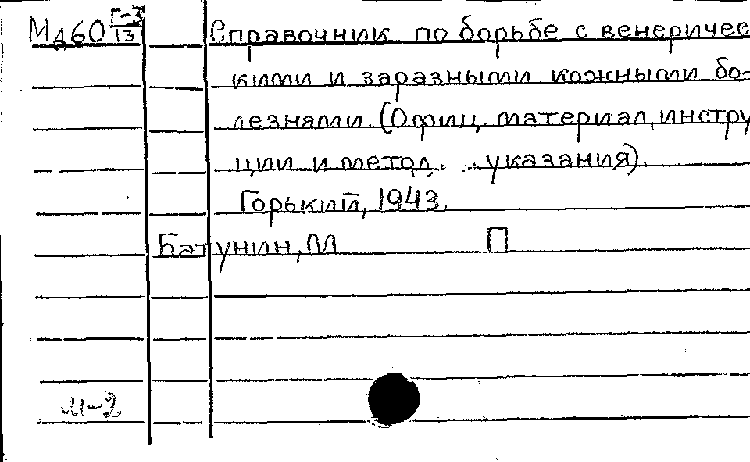 Мд60 Г-3/13 Справочник по борьбе с венеричес
кими и заразными кожными бо-
лезнями. (Офиц. материал, инстру
ции и метод. указания).
Горький, 1943.
Батунин, М П
и-2